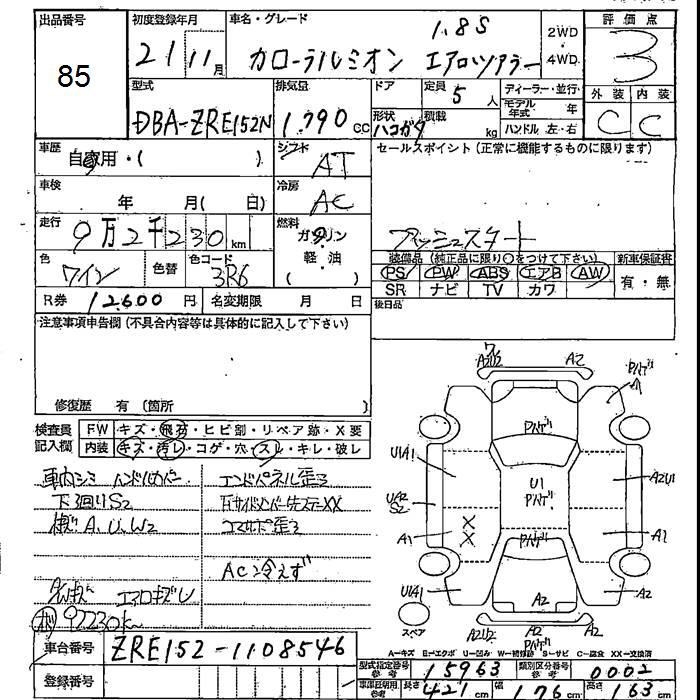 出品番号 初度登録年月 車名・グレード 1.8S 2WD・4WD 評価点
85 21 11月 カローラルミオン エアロツアラー 3
型式 排気量 ドア 定員 5人 ディーラー・並行 外装 内装
DBA-ZRE152N 1,790cc 形状 ハコガタ 積載 kg モデル年式 年 C C
ハンドル 左・右
車歴 自家用・( ) シフト AT セールスポイント(正常に機能するものに限ります)
車検 年 月( 日) 冷房 AC
走行 9万2千230km 燃料 ガソリン・軽油 プッシュスタート
色 ワイン 色替 色コード 3R6 装備品(純正品に限り○をつけて下さい) 新車保証書
PS PW ABS エアB AW 有・無
SR ナビ TV カワ
R券 12,600円 名変期限 月 日 後日品
注意事項申告欄(不具合内容等は具体的に記入して下さい)
修復歴 有(箇所 )
検査員記入欄 FW キズ・飛石・ヒビ割・リペア跡・X要
内装 キズ・汚レ・コゲ・穴・スレ・キレ・破レ
車内シミ ハンドルカバー エンドパネル歪ミ
下廻りS2
A、U、W2 コアサポ歪ミ
AC冷えず
エアロキズレ
92230k
車台番号 ZRE152-1108546
登録番号
W2 A2U2 A2 Pハゲ A1
Pハゲ
U1A1 U1 Pハゲ A2U1
UA2 S2
X X
A1 Pハゲ A1
U1A1 A2 A2
スペア A2U2 A2 Pハゲ
A-キズ E-エクボ U-凹み W-補修跡 S-サビ C-腐食 XX-交換済
型式指定番号 参考 15963 類別区分番号 参考 0002
車庫証明用 参考 長さ 421cm 幅 176cm 高さ 163cm